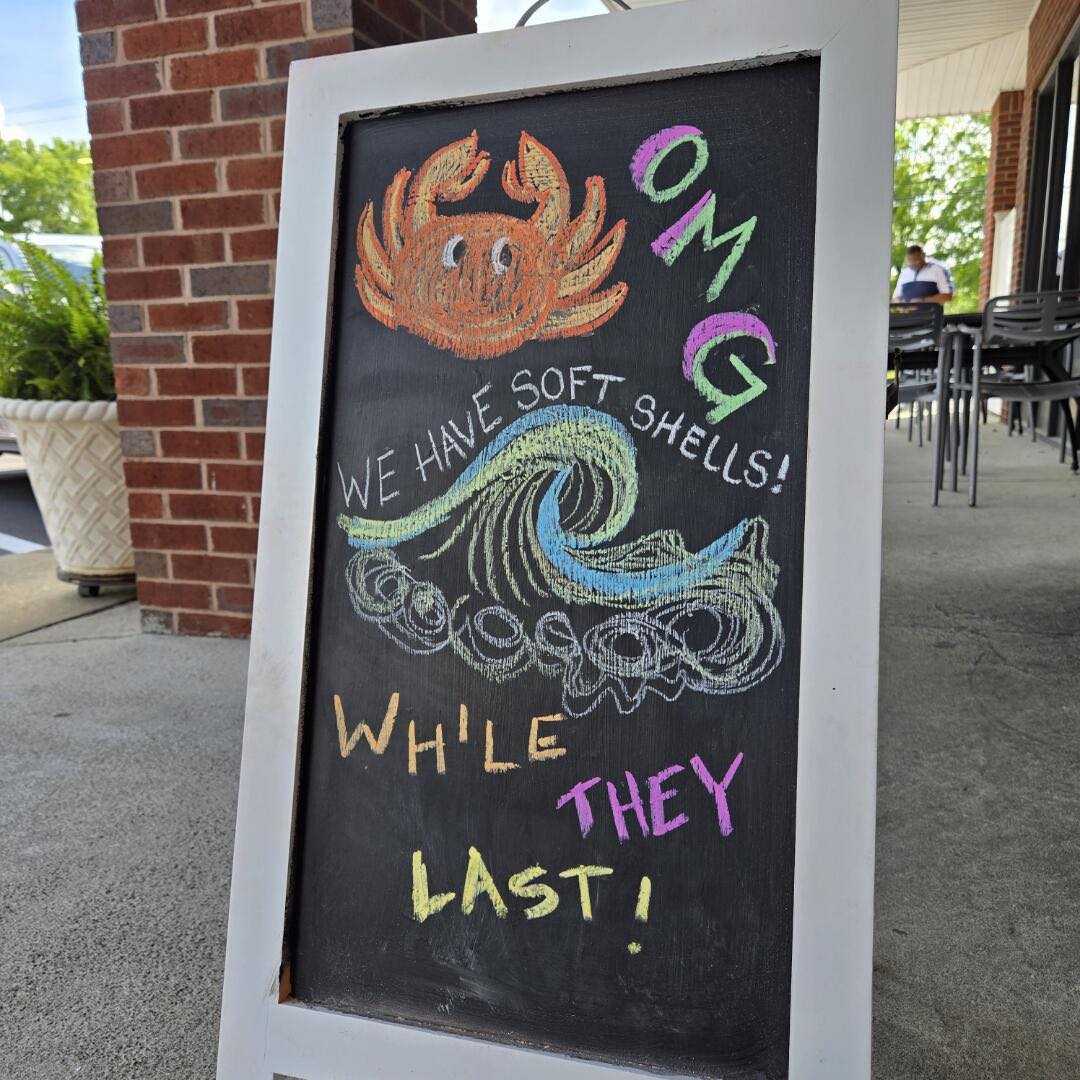 OMG
WE HAVE SOFT SHELLS!
WHILE
THEY
LAST!